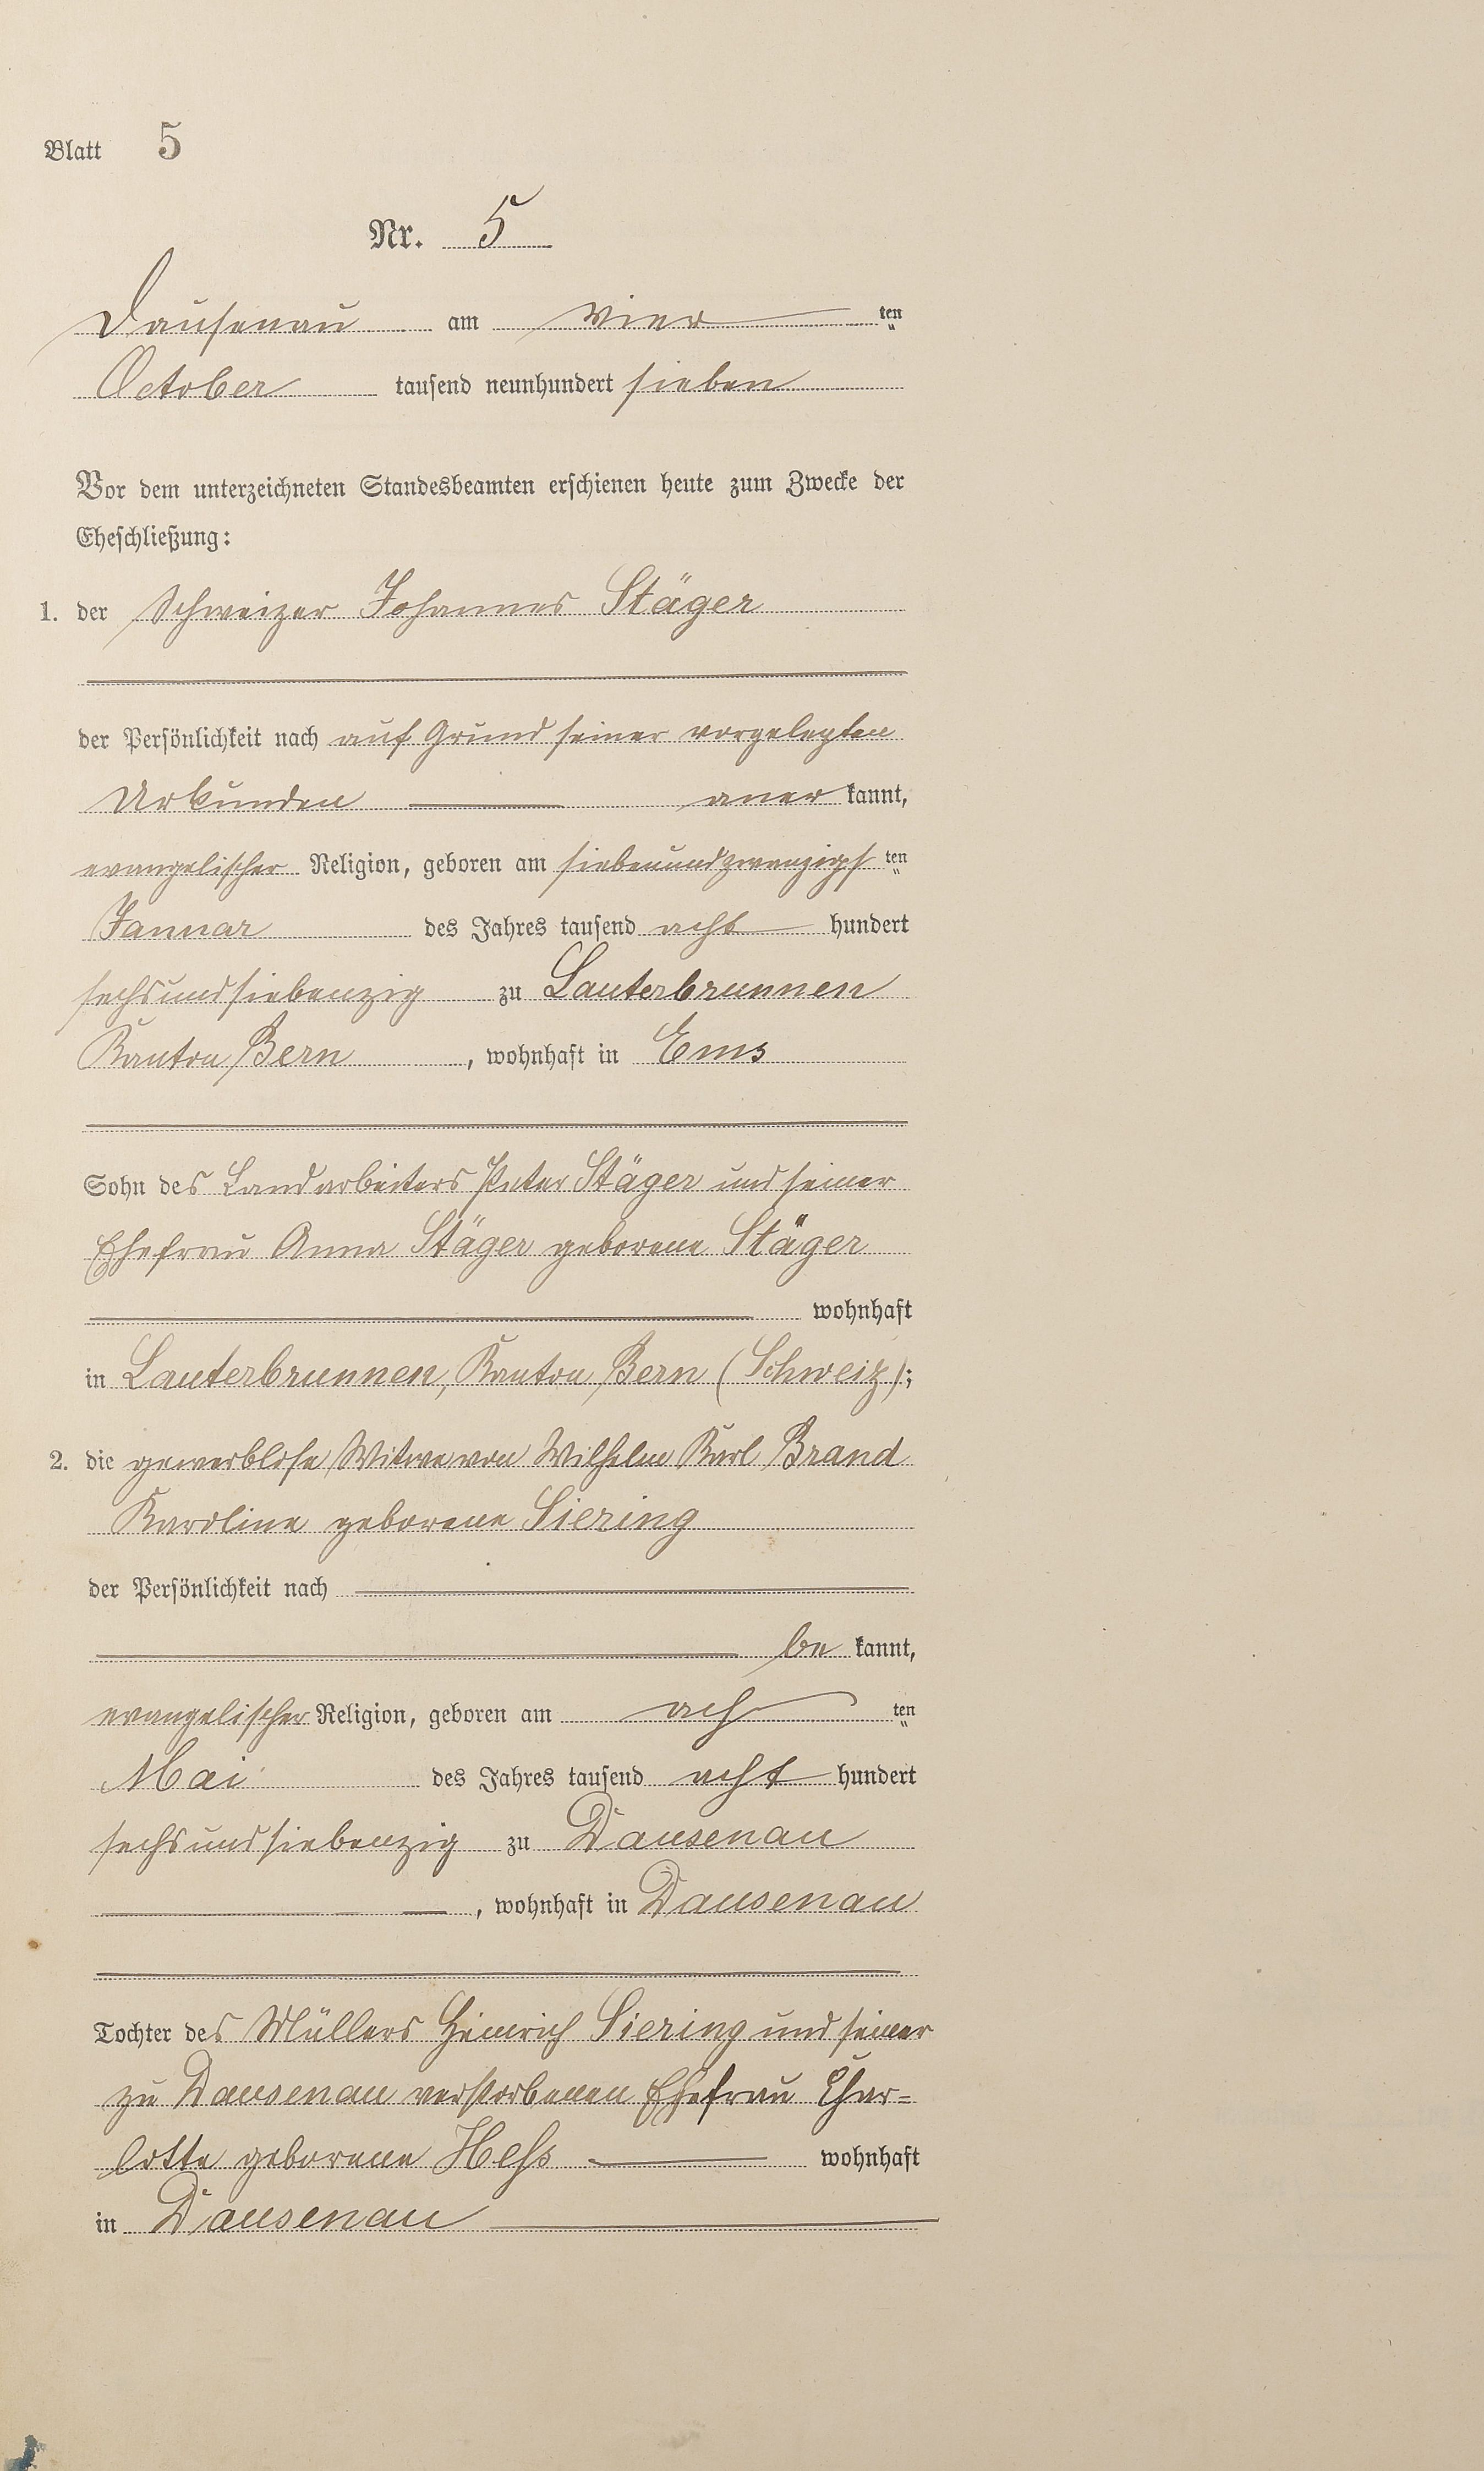 Blatt 5
Nr. 5
Dausenau am vier ten
October tausend neunhundert sieben
Vor dem unterzeichneten Standesbeamten erschienen heute zum Zwecke der
Eheschließung:
1. der Schweizer Johannes Stäger
der Persönlichkeit nach auf Grund seiner vorgelegten
Urkunden aner kannt,
evangelischer Religion, geboren am siebenundzwanzigs ten
Januar des Jahres tausend acht hundert
sechsundsiebenzig zu Lauterbrunnen
Kanton Bern, wohnhaft in Ems
Sohn des Landarbeiters Peter Stäger und seiner
Ehefrau Anna Stäger geborene Stäger
wohnhaft
in Lauterbrunnen, Kanton Bern (Schweiz);
2. die gewerblose Witwe von Wilhelm Karl Brand
Karoline geborene Siering
der Persönlichkeit nach
be kannt,
evangelischer Religion, geboren am ach ten
Mai des Jahres tausend acht hundert
sechsundsiebenzig zu Dausenau
, wohnhaft in Dausenau
Tochter des Müllers Heinrich Siering und seiner
zu Dausenau verstorbenen Ehefrau Char=
lotte geborene Heß wohnhaft
in Dausenau